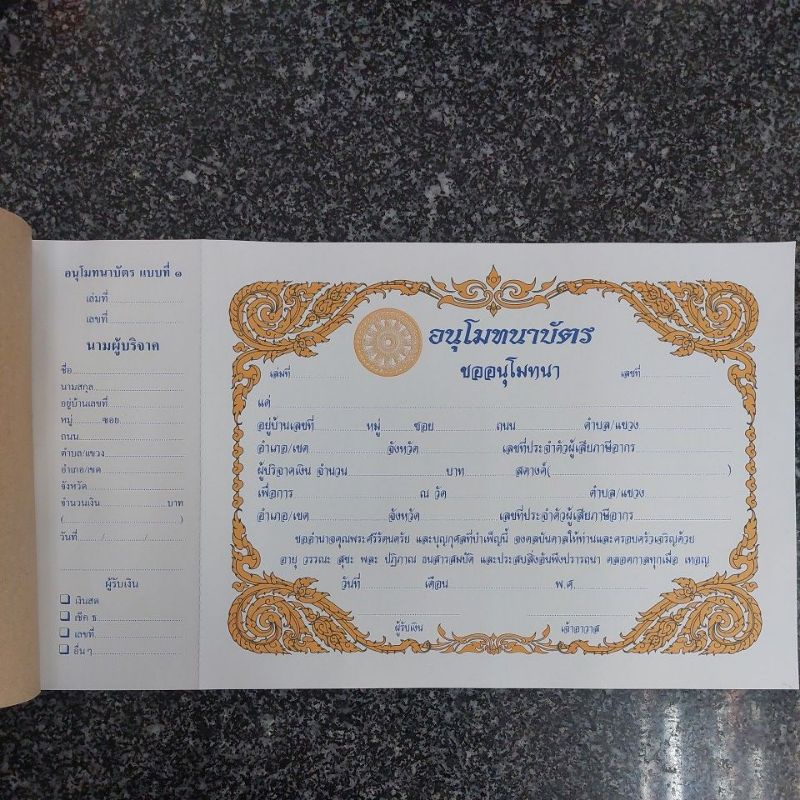 อนุโมทนาบัตร แบบที่ ๑
เล่มที่
เลขที่
นามผู้บริจาค
ชื่อ
นามสกุล
อยู่บ้านเลขที่
หมู่ ซอย
ถนน
ตำบล/แขวง
อำเภอ/เขต
จังหวัด
จำนวนเงิน บาท
( )
วันที่ / /
ผู้รับเงิน
เงินสด
เช็ค ธ
เลขที่
อื่น ๆ
อนุโมทนาบัตร
ขออนุโมทนา
เล่มที่ เลขที่
แด่
อยู่บ้านเลขที่ หมู่ ซอย ถนน ตำบล/แขวง
อำเภอ/เขต จังหวัด เลขที่ประจำตัวผู้เสียภาษีอากร
ผู้บริจาคเงิน จำนวน บาท สตางค์( )
เพื่อการ ณ วัด ตำบล/แขวง
อำเภอ/เขต จังหวัด เลขที่ประจำตัวผู้เสียภาษีอากร
ขออำนาจคุณพระศรีรัตนตรัย และบุญกุศลที่บำเพ็ญนี้ จงดลบันดาลให้ท่านและครอบครัวเจริญด้วย
อายุ วรรณะ สุขะ พละ ปฏิภาณ ธนสารสมบัติ และประสบสิ่งอันพึงปรารถนา ตลอดกาลทุกเมื่อ เทอญ
วันที่ เดือน พ.ศ.
ผู้รับเงิน เจ้าอาวาส